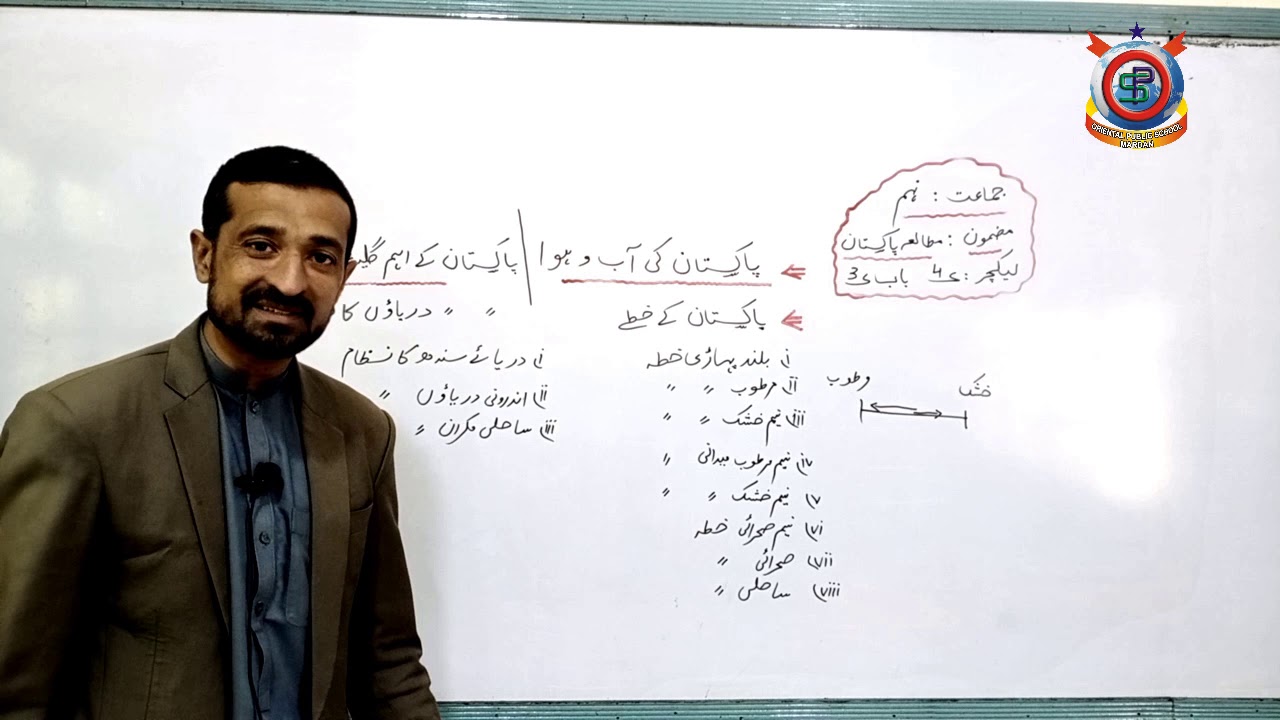 ORIENTAL PUBLIC SCHOOL
MARDAN
جماعت : نہم
مضمون : مطالعہ پاکستان
لیکچر : ی 4 باب ی 3
پاکستان کی آب و ہوا
پاکستان کے خطے
i) بلند پہاڑی خطہ
ii) مرطوب " "
iii) نیم خشک " "
iv) نیم مرطوب میدانی "
v) نیم خشک " "
vi) نیم صحرائی خطہ
vii) صحرائی "
viii) ساحلی "
مرطوب
خشک
پاکستان کے اہم
" " دریاؤں کا
i) دریائے سندھ کا نظام
ii) اندرونی دریاؤں "
iii) ساحلی مکران "